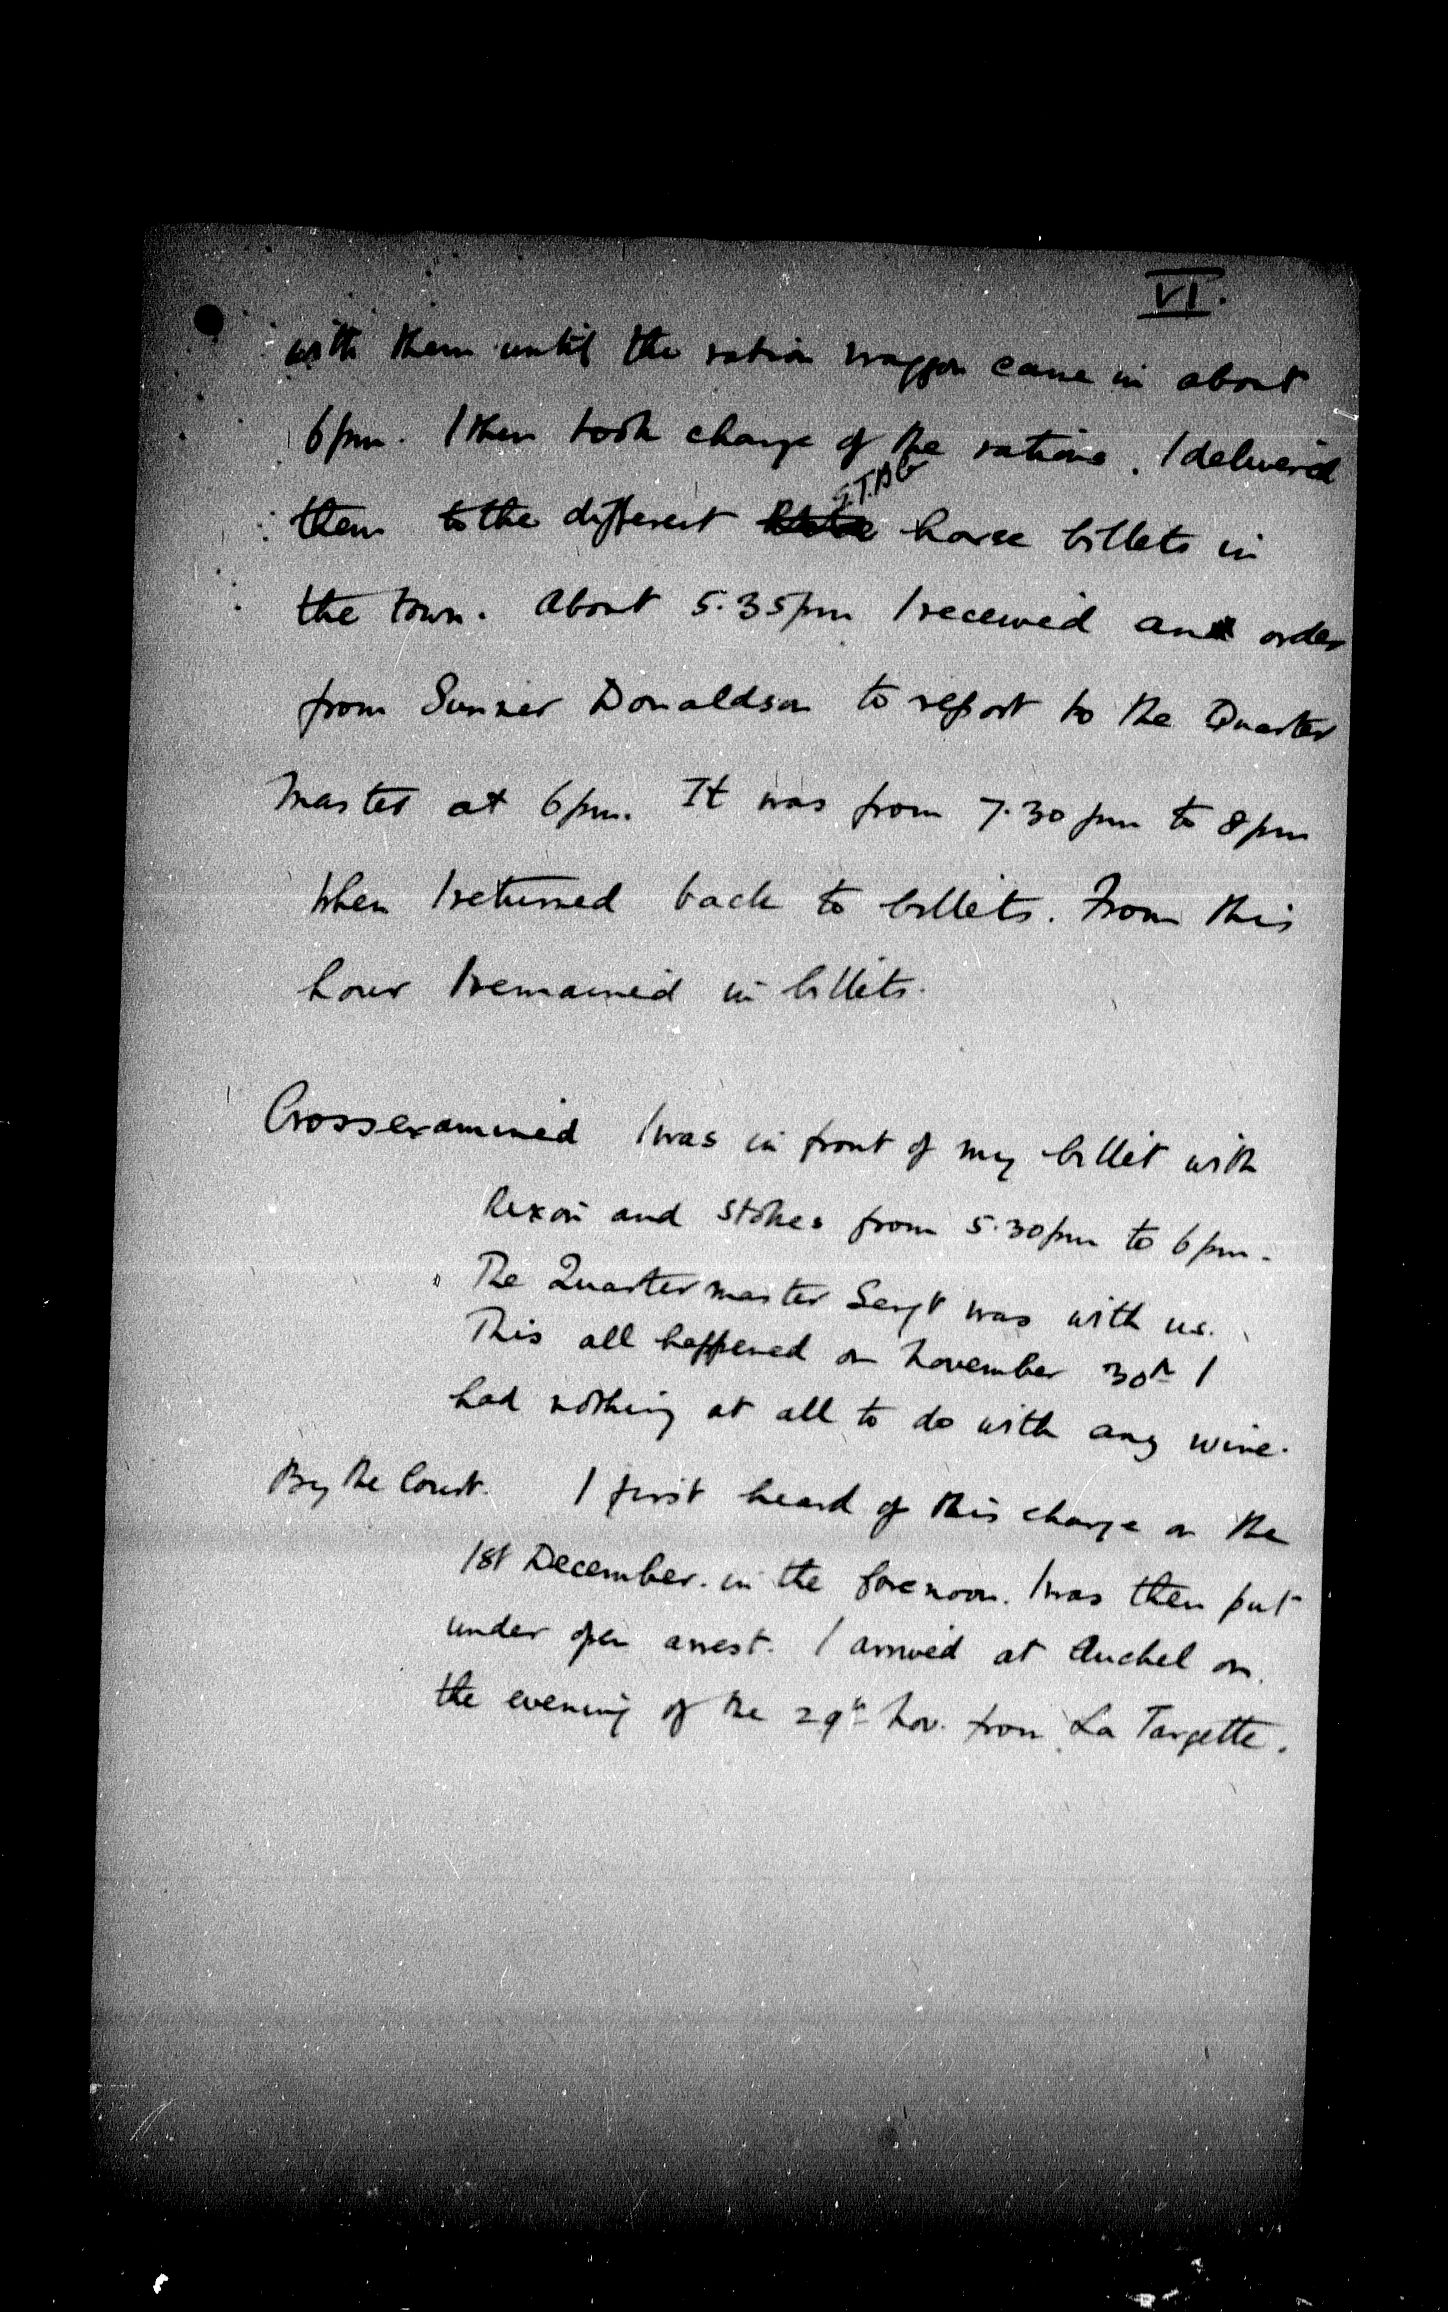 VI.
with them until the ration waggon came in about
6pm. I then took charge of the rations. I delivered
S.T.AG
them to the different horse billets in
the town. About 5.35pm I received an order
from Gunner Donaldson to report to the Quarter
Master at 6pm. It was from 7.30pm to 8pm
when I returned back to billets. From this
hour I remained in billets.
Crossexamined I was in front of my billet with
Rixon and Stokes from 5.30pm to 6pm.
The Quartermaster Sergt was with us.
This all happened on November 30th I
had nothing at all to do with any wine.
By the Court. I first heard of this charge on the
1st December. in the forenoon. I was then put
under open arrest. I arrived at Auchel on
the evening of the 29th Nov. from La Targette.